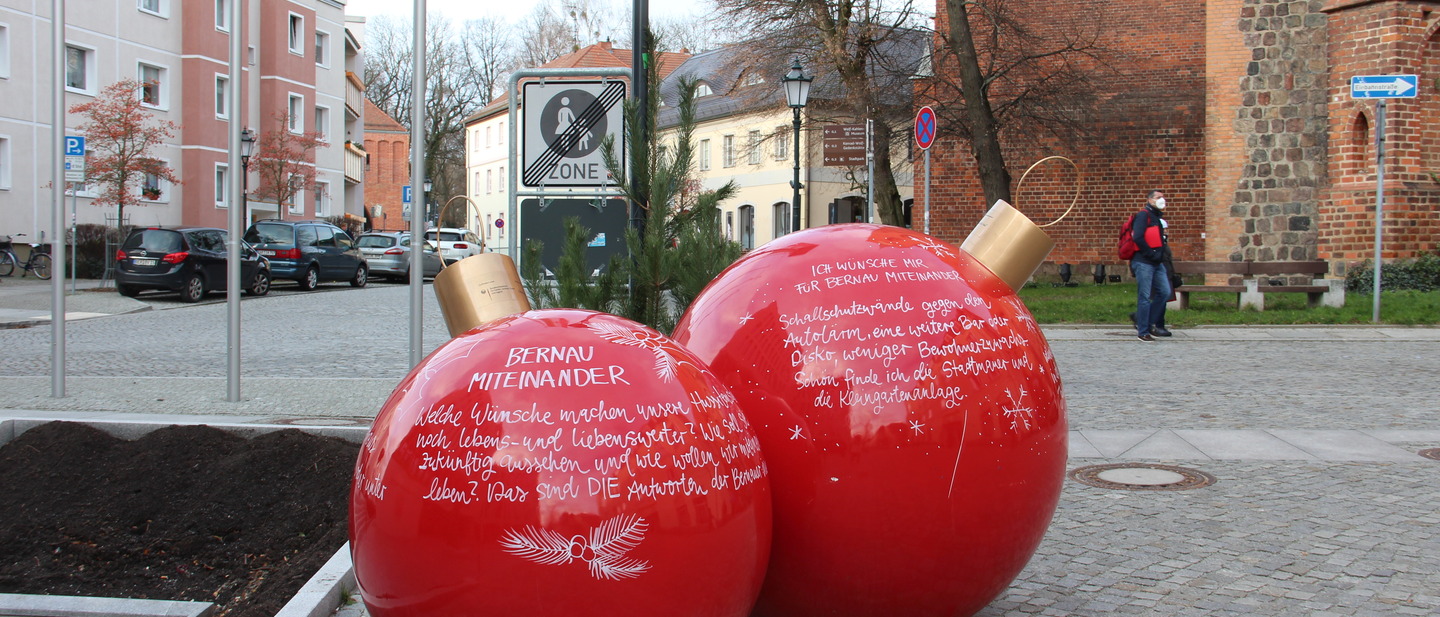 P
ZONE
Einbahnstraße
BERNAU
MITEINANDER
Welche Wünsche machen unsere
noch lebens- und liebenswerter? Wie soll
zukünftig aussehen und wie wollen wir
leben? Das sind DIE Antworten der Bernauer
unter
ICH WÜNSCHE MIR
FÜR BERNAU MITEINANDER
Schallschutzwände gegen den
Autolärm, eine weitere Bar oder
Disko, weniger Bewohnerzuwachs.
Schön finde ich die Stadtmauer und
die Kleingartenanlage.